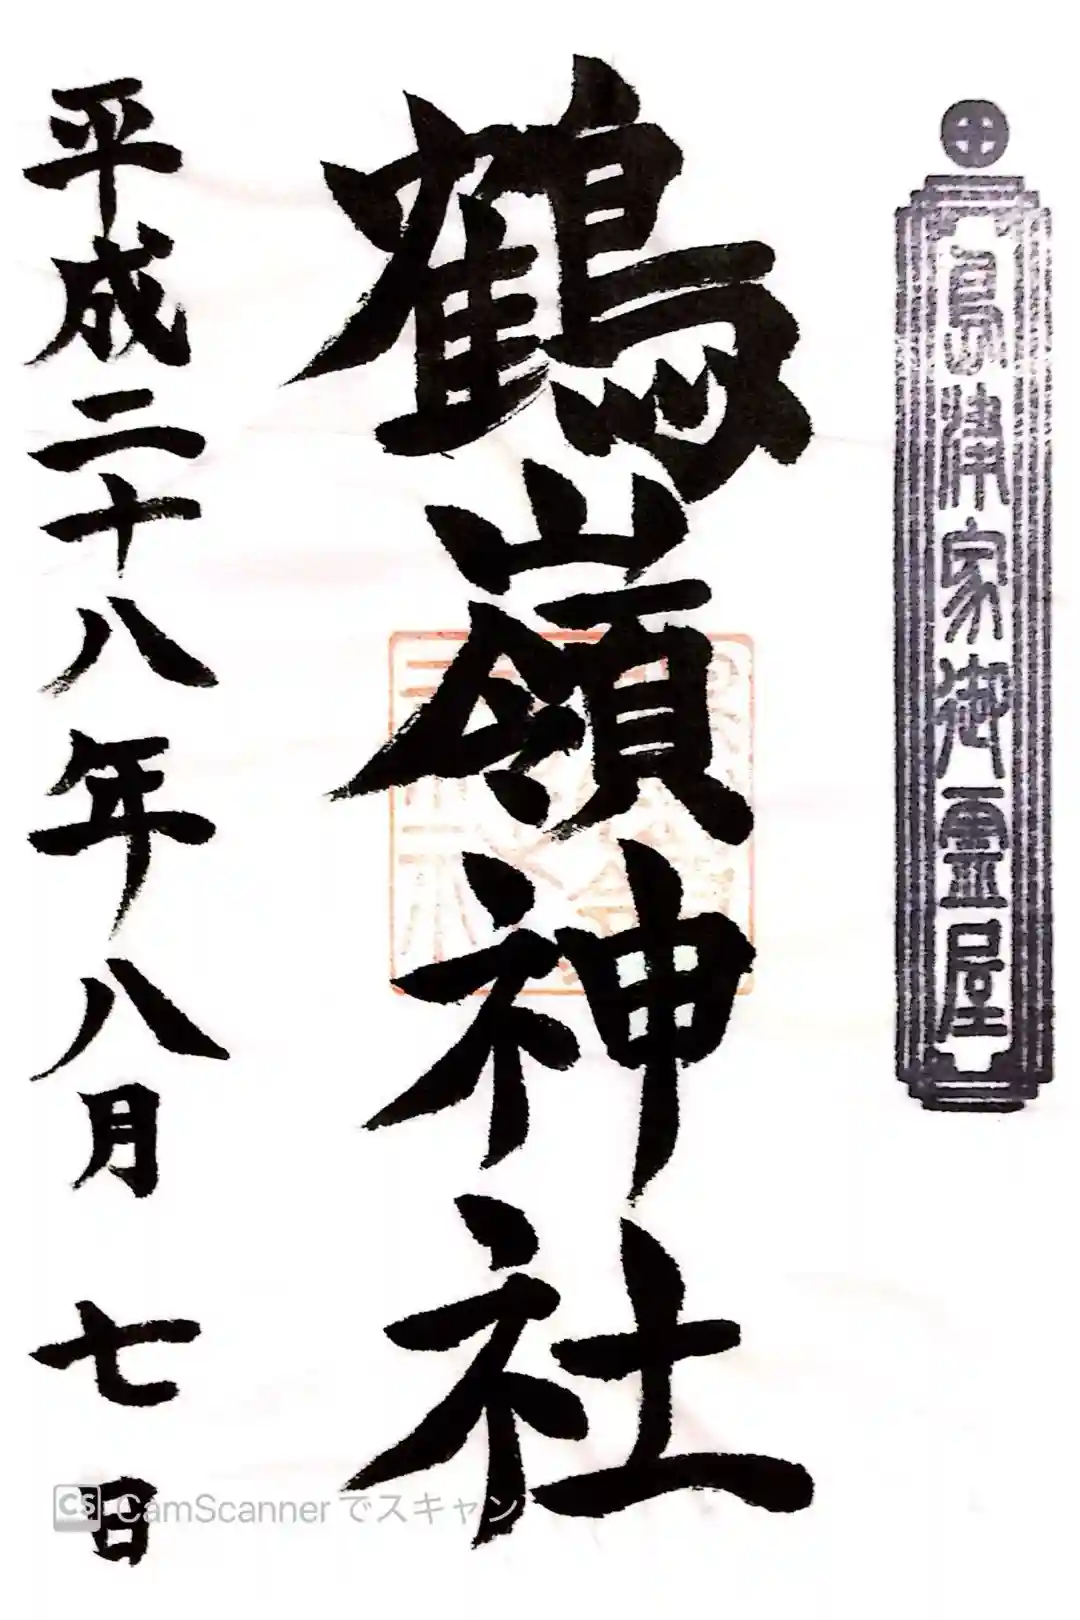 島津家御霊屋
鶴嶺神社
平成二十八年八月七日
CS CamScanner でスキャン